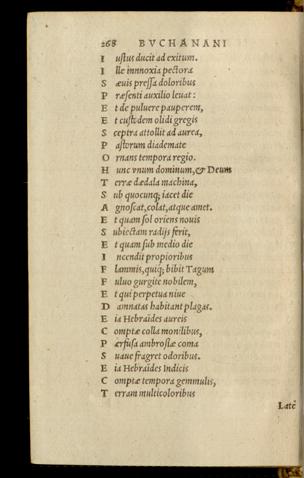 268 BVCHANANI
I ustus ducit ad exitum.
I lle innnoxia pectora
S æuis pressa doloribus
P ræsenti auxilio leuat:
E t de puluere pauperem,
E t custodem olidi gregis
S ceptra attollit ad aurea,
P astorum diademate
O rnans tempora regio.
H unc vnum dominum, & Deum
T erræ dædala machina,
S ub quocunq; iacet die
A gnoscat, colat, atque amet.
E t quam sol oriens nouis
S ubiectam radijs ferit,
E t quam sub medio die
I ncendit propioribus
F lammis, quiq; bibit Tagum
F uluo gurgite nobilem,
E t qui perpetua niue
D amnatas habitant plagas.
E ia Hebraides aureis
C omptæ colla monilibus,
P erfusa ambrosiæ coma
S uaue fragret odoribus.
E ia Hebraides Indicis
C omptæ tempora gemmulis,
T erram multicoloribus
Latè